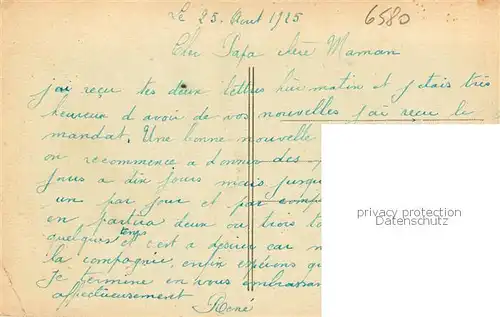 Le 25. Aout 1925
6580
Cher Papa chère Maman
j'ai reçu tes deux lettres hier matin et j'etais très
heureux d avoir de vos nouvelles j'ai reçu le
mandat. Une bonne nouvelle
on recommence a donner des
jusqu a dix jours mais jusqu
un par jour et par comp
en partira deux ou trois
quelques temps et c'est a desirer car
la compagnie, enfin espérons qu
Je termine en vous embrassan
affectueusement
René
privacy protection
Datenschutz